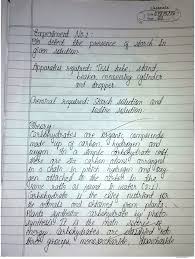 Experiment No: 2
To detect the presence of starch in
given solution.
Apparatus required: Test tube, stand,
beaker, measuring cylinder
and dropper.
Chemical required: Starch solution and
iodine solution.
Theory:
Carbohydrates are organic compounds
made up of carbon, hydrogen and
oxygen. In a simple carbohydrate
there are six carbon atoms arranged
in a chain in which hydrogen and oxy-
gen attached to the carbon in the
same ratio as found in water (2:1)
Carbohydrate is the only nutrient for
the animals and obtained from plants.
Plants synthesize carbohydrate by photo-
synthesis. It is the main source of
energy. Carbohydrates are classified into
groups, monosaccharide,